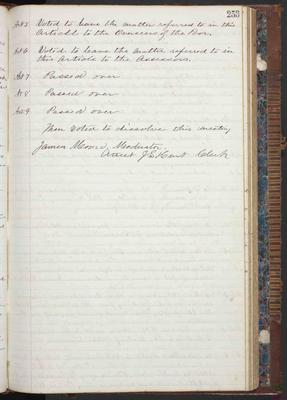 259
Art 5 Voted to leave the matter referred to in this
Article to the Overseers of the Poor.
Art 6 Voted to leave the matter referred to in
this Article to the Assessors.
Art 7 Passed over
Art 8 Passed over
Art 9 Passed over
Then voted to dissolve this meeting
James Moderator
Attest J. E. Clerk